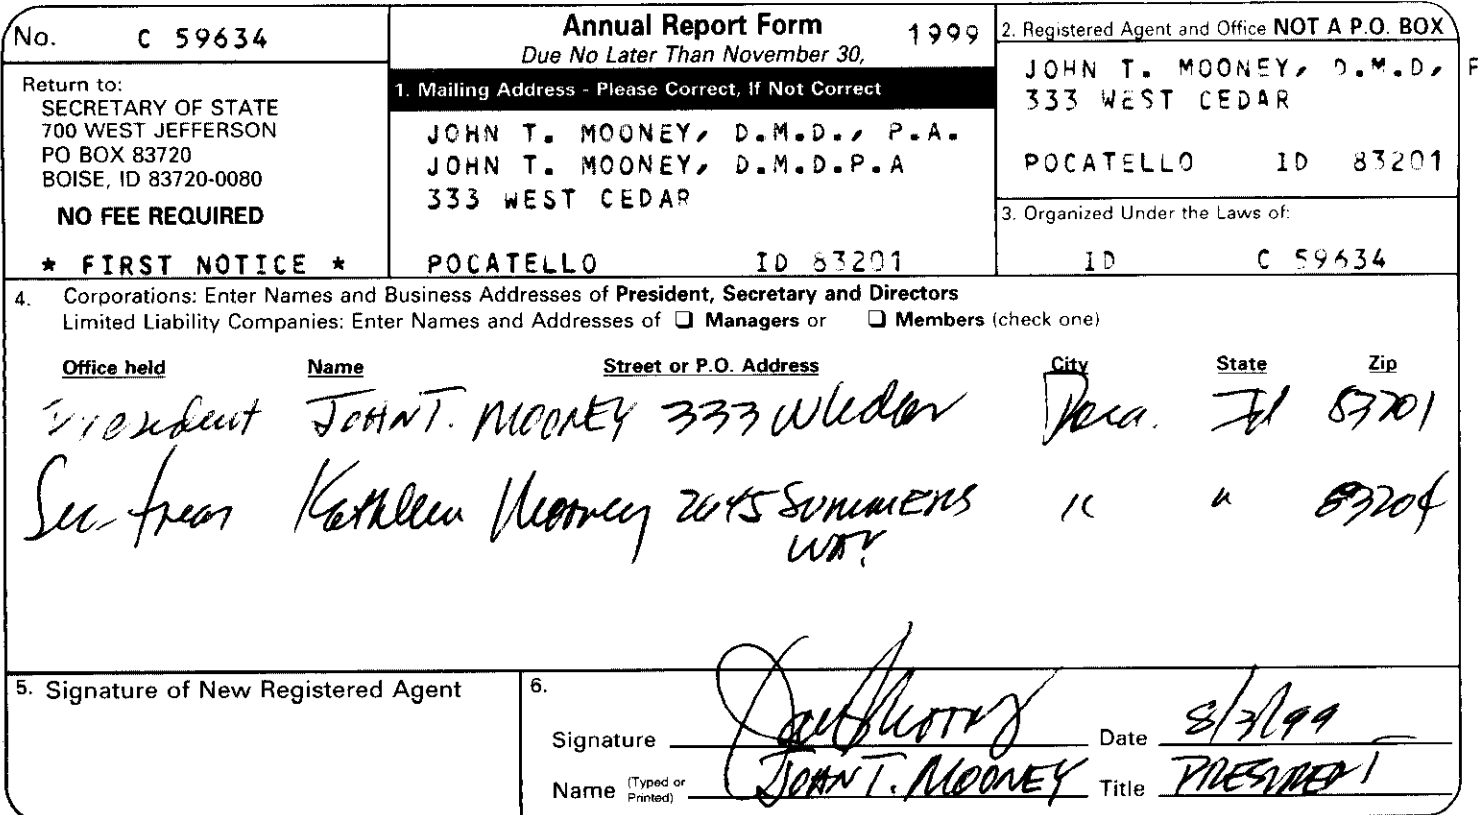 No. C 59634
Return to:
SECRETARY OF STATE
700 WEST JEFFERSON
PO BOX 83720
BOISE, ID 83720-0080
NO FEE REQUIRED
* FIRST NOTICE *
Annual Report Form 1999
Due No Later Than November 30,
1. Mailing Address - Please Correct, If Not Correct
JOHN T. MOONEY, D.M.D., P.A.
JOHN T. MOONEY, D.M.D.P.A
333 WEST CEDAR
POCATELLO ID 83201
2. Registered Agent and Office NOT A P.O. BOX
JOHN T. MOONEY, D.M.D, P
333 WEST CEDAR
POCATELLO ID 83201
3. Organized Under the Laws of:
ID C 59634
4. Corporations: Enter Names and Business Addresses of President, Secretary and Directors
Limited Liability Companies: Enter Names and Addresses of ❑ Managers or ❑ Members (check one)
Office held Name Street or P.O. Address City State Zip
President JOHN T. MOONEY 333 W Cedar Poca. Id 83201
Sec-treas Kathleen Mooney 2645 SUMMERS " " 83204
WAY
5. Signature of New Registered Agent
6.
Signature John T Mooney Date 8/3/99
Name (Typed or Printed) JOHN T. MOONEY Title PRESIDENT